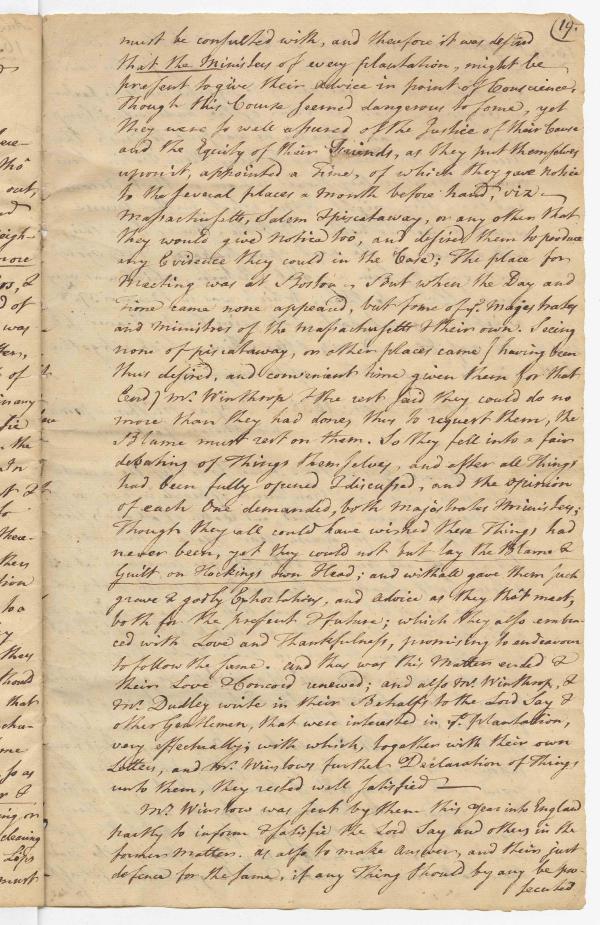 19.
must be consulted with, and therefore it was desird
that the Ministers of every plantation, might be
present to give their Advice in point of Conscience.
Though this Course seemed dangerous to some, yet
they were so well assured of the Justice of their Cause
and the Equity of their Friends, as they put themselves
upon it, appointed a Time, of which they gave notice
to the several places a month before hand; viz
Massachusetts, Salem & piscataway, or any other that
they would give notice too, and desired them to produce
any Evidence they could in the Case; The place for
meeting was at Boston. But when the Day and
Time came none appeard, but some of ye. Magistrates
and ministers of the Massachusetts & their own. Seeing
none of piscataway, or other places came [having been
thus desired, and convenient time given them for that
End] Mr. Winthrop & the rest said they could do no
more than they had done, thus to request them, the
Blame must rest on them. So they fell into a fair
debating of Things themselves, and after all Things
had been fully opened & discussed, and the opinion
of each One demanded, both Magistrates & ministers;
Though they all could have wished these Things had
never been, yet they could not but lay the Blame &
Guilt on Hockings own Head; and withall gave them such
grave & godly Exhortations, and Advice as they tho't meet,
both for the present & future; which they also embra-
ced with Love and Thankfulness, promising to endeavour
to follow the same. And thus was this Matter ended &
their Love & Concord renewed; and also Mr. Winthrop, &
Mr. Dudley write in their Behalfs to the Lord Say &
other Gentlemen, that were interested in ye. plantation,
very effectually; with which, together with their own
Letters, and Mr. Winslows further Declaration of Things
unto them, they rested well satisfied
Mr. Winslow was sent by them this Year into England
partly to inform & satisfie the Lord Say and others in the
former Matter. As also to make Answer, and their just
defence for the same, if any Thing should by any be pro-
secuted